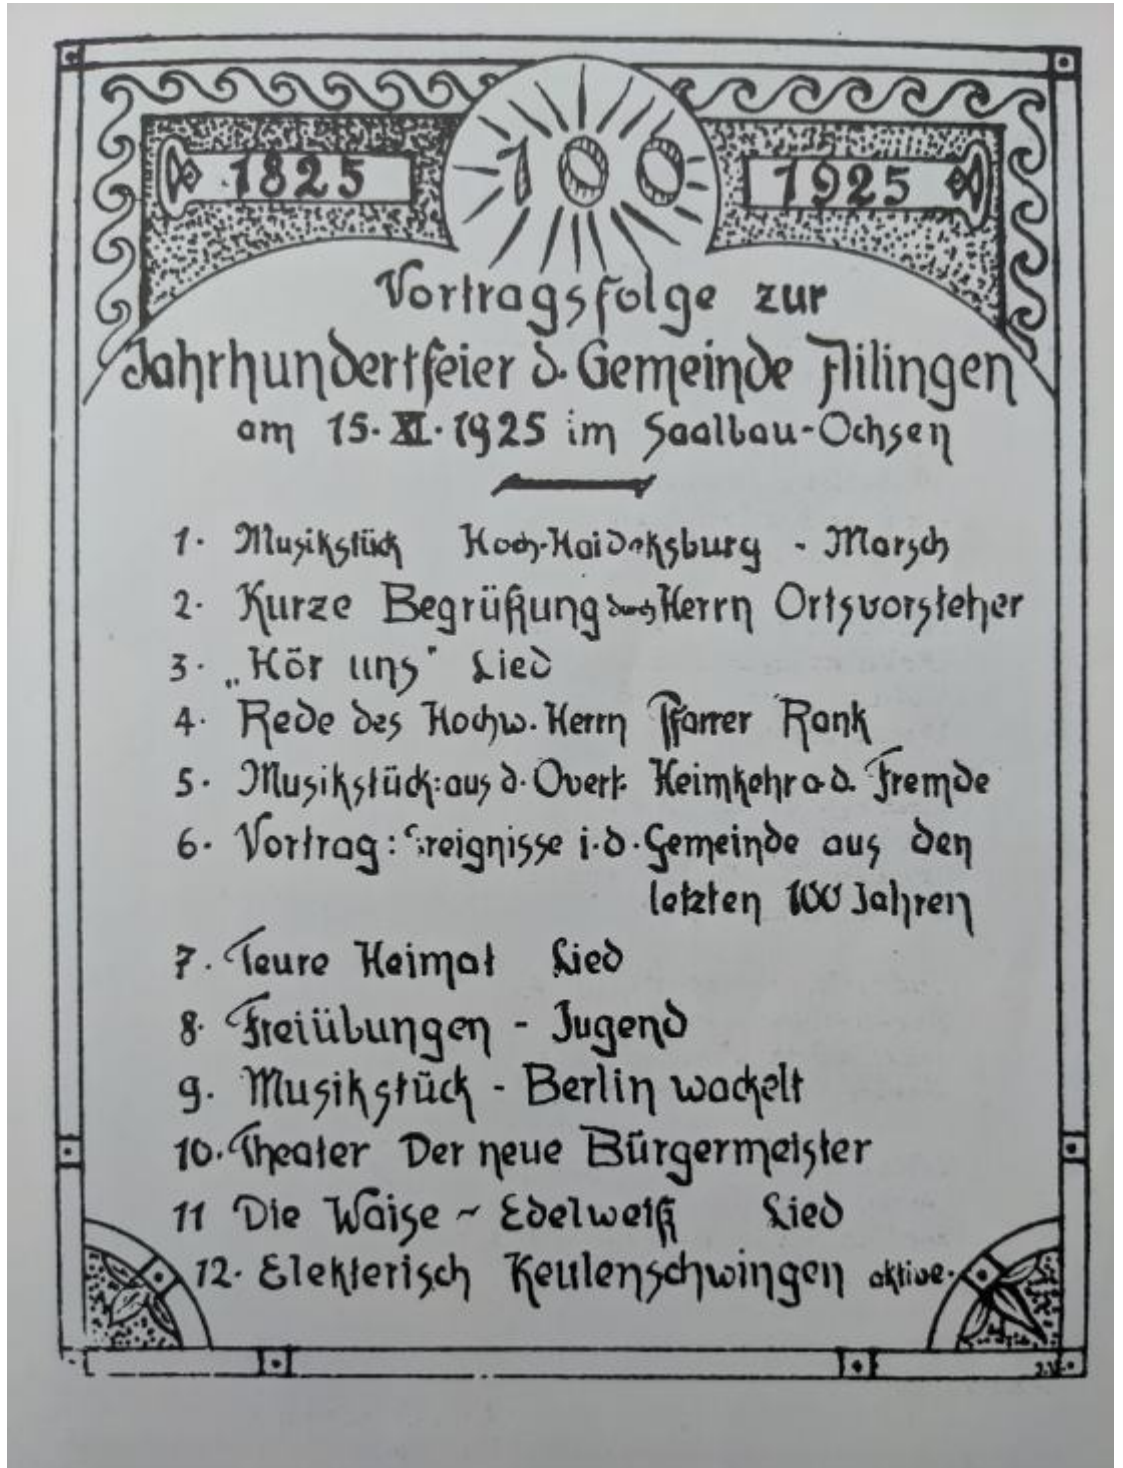 1825
100
1925
Vortragsfolge zur
Jahrhundertfeier d. Gemeinde Ailingen
am 15. XI. 1925 im Saalbau-Ochsen
1. Musikstück Hoch-Haideksburg - Marsch
2. Kurze Begrüßung durch Herrn Ortsvorsteher
3. „Hör uns" Lied
4. Rede des Hochw. Herrn Pfarrer Rank
5. Musikstück: aus d. Overt. Heimkehr a. d. Fremde
6. Vortrag: Ereignisse i. d. Gemeinde aus den
letzten 100 Jahren
7. Teure Heimat Lied
8. Freiübungen - Jugend
9. Musikstück - Berlin wackelt
10. Theater Der neue Bürgermeister
11 Die Waise ~ Edelweiß Lied
12. Elekterisch Keulenschwingen aktive.